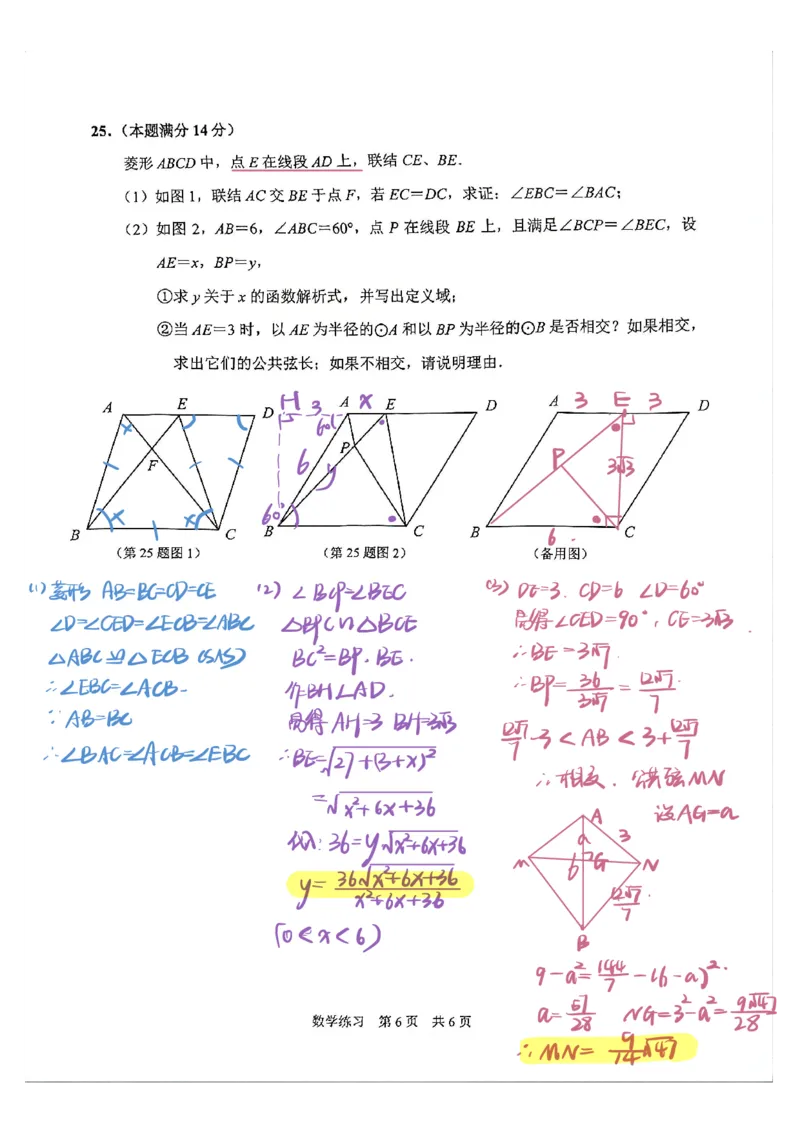 25.（本题满分 14 分）
菱形 ABCD 中，点 E 在线段 AD 上，联结 CE、BE.
（1）如图 1，联结 AC 交 BE 于点 F，若 EC＝DC，求证：∠EBC＝∠BAC；
（2）如图 2，AB＝6，∠ABC＝60°，点 P 在线段 BE 上，且满足∠BCP＝∠BEC，设
AE＝x，BP＝y，
①求 y 关于 x 的函数解析式，并写出定义域；
②当 AE＝3 时，以 AE 为半径的⊙A 和以 BP 为半径的⊙B 是否相交？如果相交，
求出它们的公共弦长；如果不相交，请说明理由.
A E D
F
x x x
B C
（第 25 题图 1）
H 3 A x E D
60°
6 P y
60°
B C
（第 25 题图 2）
A 3 E 3 D
P 3√3
B 6 C
（备用图）
(1) 菱形 AB=BC=CD=CE
∠D=∠CED=∠ECB=∠ABC
△ABC≌△ECB (SAS)
∴∠EBC=∠ACB.
∵AB=BC
∴∠BAC=∠ACB=∠EBC
(2) ∠BCP=∠BEC
△BPC∽△BCE
BC²=BP·BE.
作BH⊥AD.
易得 AH=3 BH=3√3
∴BE=√27+(3+x)²
=√x²+6x+36
代入: 36=y√x²+6x+36
y= 36√x²+6x+36 / x²+6x+36
(0<x<6)
(3) DE=3. CD=6 ∠D=60°
易得∠CED=90°, CE=3√3
∴BE=3√7.
∴BP= 36/3√7 = 12√7/7.
12√7/7 -3 < AB < 3+ 12√7/7
∴相交. 公共弦MN
设AG=a
A
a 3
M 6 G N
12√7/7.
B
9-a²= 144/7 -(6-a)².
a= 51/28 NG=3²-a²= 9√47/28
∴MN= 9/14 √47
数学练习 第 6 页 共 6 页